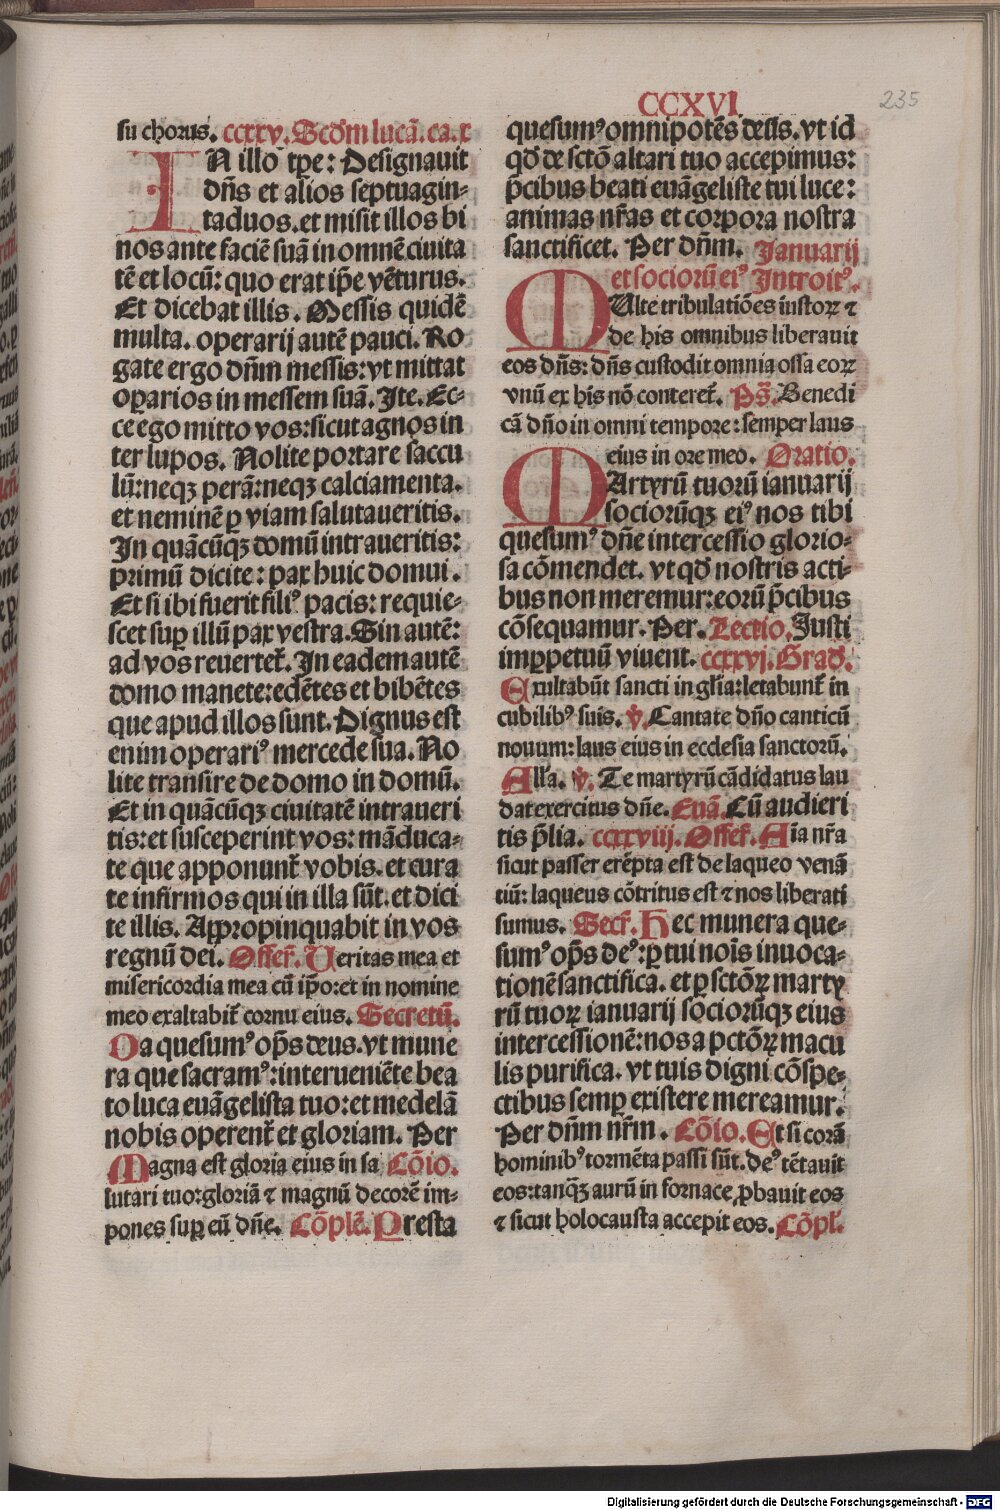 CCXVI.
235
su chorus. ccxxv. Scd̄m lucā. ca. x
IN illo tp̄e: Designauit
dn̄s et alios septuagin-
taduos. et misit illos bi
nos ante faciē suā in omnē ciuita
tē et locū: quo erat ip̄e vēturus.
Et dicebat illis. Messis quidē
multa. operarij autē pauci. Ro
gate ergo dn̄m messis: vt mittat
oꝑarios in messem suā. Ite. Ec-
ce ego mitto vos: sicut agnos in
ter lupos. Nolite portare saccu
lū: neqꝫ perā: neqꝫ calciamenta.
et neminē ꝑ viam salutaueritis.
In quācūqꝫ domū intraueritis:
primū dicite: pax huic domui.
Et si ibi fuerit filiꝰ pacis: requie-
scet suꝑ illū pax vestra. Sin autē:
ad vos reuertet̄. In eadem autē
domo manete: edētes et bibētes
que apud illos sunt. Dignus est
enim operariꝰ mercede sua. No
lite transire de domo in domū.
Et in quācūqꝫ ciuitatē intraueri
tis: et susceperint vos: māduca-
te que apponunt̄ vobis. et cura
te infirmos qui in illa sūt. et dici
te illis. Appropinquabit in vos
regnū dei. Offer̄. Veritas mea et
misericordia mea cū ip̄o: et in nomine
meo exaltabit̄ cornu eius. Secretū.
Da quesumꝰ op̄s deus. vt mune
ra que sacramꝰ: interueniēte bea
to luca euāgelista tuo: et medelā
nobis operent̄ et gloriam. Per
Magna est gloria eius in sa Cōio.
lutari tuo: gloriā ⁊ magnū decorē im-
pones suꝑ eū dn̄e. Cōplē. Presta
quesumꝰ omnipotēs de⁹s. vt id
qd̄ de sctō altari tuo accepimus:
p̄cibus beati euāgeliste tui luce:
animas nr̄as et corpora nostra
sanctificet. Per dn̄m. Januarij
et sociorū eiꝰ Introitꝰ.
MUlte tribulatiōes iustoꝝ ⁊
de his omnibus liberauit
eos dn̄s: dn̄s custodit omnia ossa eoꝝ
vnū ex his nō conteret̄. Ps̄. Benedi
cā dn̄o in omni tempore: semper laus
eius in ore meo. Oratio.
MArtyrū tuorū ianuarij
sociorūqꝫ eiꝰ nos tibi
quesumꝰ dn̄e intercessio glorio-
sa cōmendet. vt qd̄ nostris acti-
bus non meremur: eorū p̄cibus
cōsequamur. Per. Lectio. Justi
imꝑpetuū viuent. ccxxvj. Grad̄.
Exultabūt sancti in gl̄ia: letabunt̄ in
cubilibꝰ suis. v̄. Cantate dn̄o canticū
nouum: laus eius in ecclesia sanctorū.
All̄a. v̄. Te martyrū cādidatus lau
dat exercitus dn̄e. Euā. Cū audieri
tis p̄lia. ccxxviij. Offer̄. Aīa nr̄a
sicut passer erēpta est de laqueo venā
tiū: laqueus cōtritus est ⁊ nos liberati
sumus. Secr̄. Hec munera que-
sumꝰ op̄s deꝰ: ꝑ tui noīs inuoca-
tionē sanctifica. et ꝑ sctōꝝ marty
rū tuoꝝ ianuarij sociorūqꝫ eius
intercessionē: nos a pctōꝝ macu
lis purifica. vt tuis digni cōspe-
ctibus semꝑ existere mereamur.
Per dn̄m nr̄m. Cōio. Et si corā
hominibꝰ tormēta passi sūt. deꝰ tētauit
eos: tanqꝫ aurū in fornace ꝓbauit eos
⁊ sicut holocausta accepit eos. Cōpl̄.
Digitalisierung gefördert durch die Deutsche Forschungsgemeinschaft - DFG